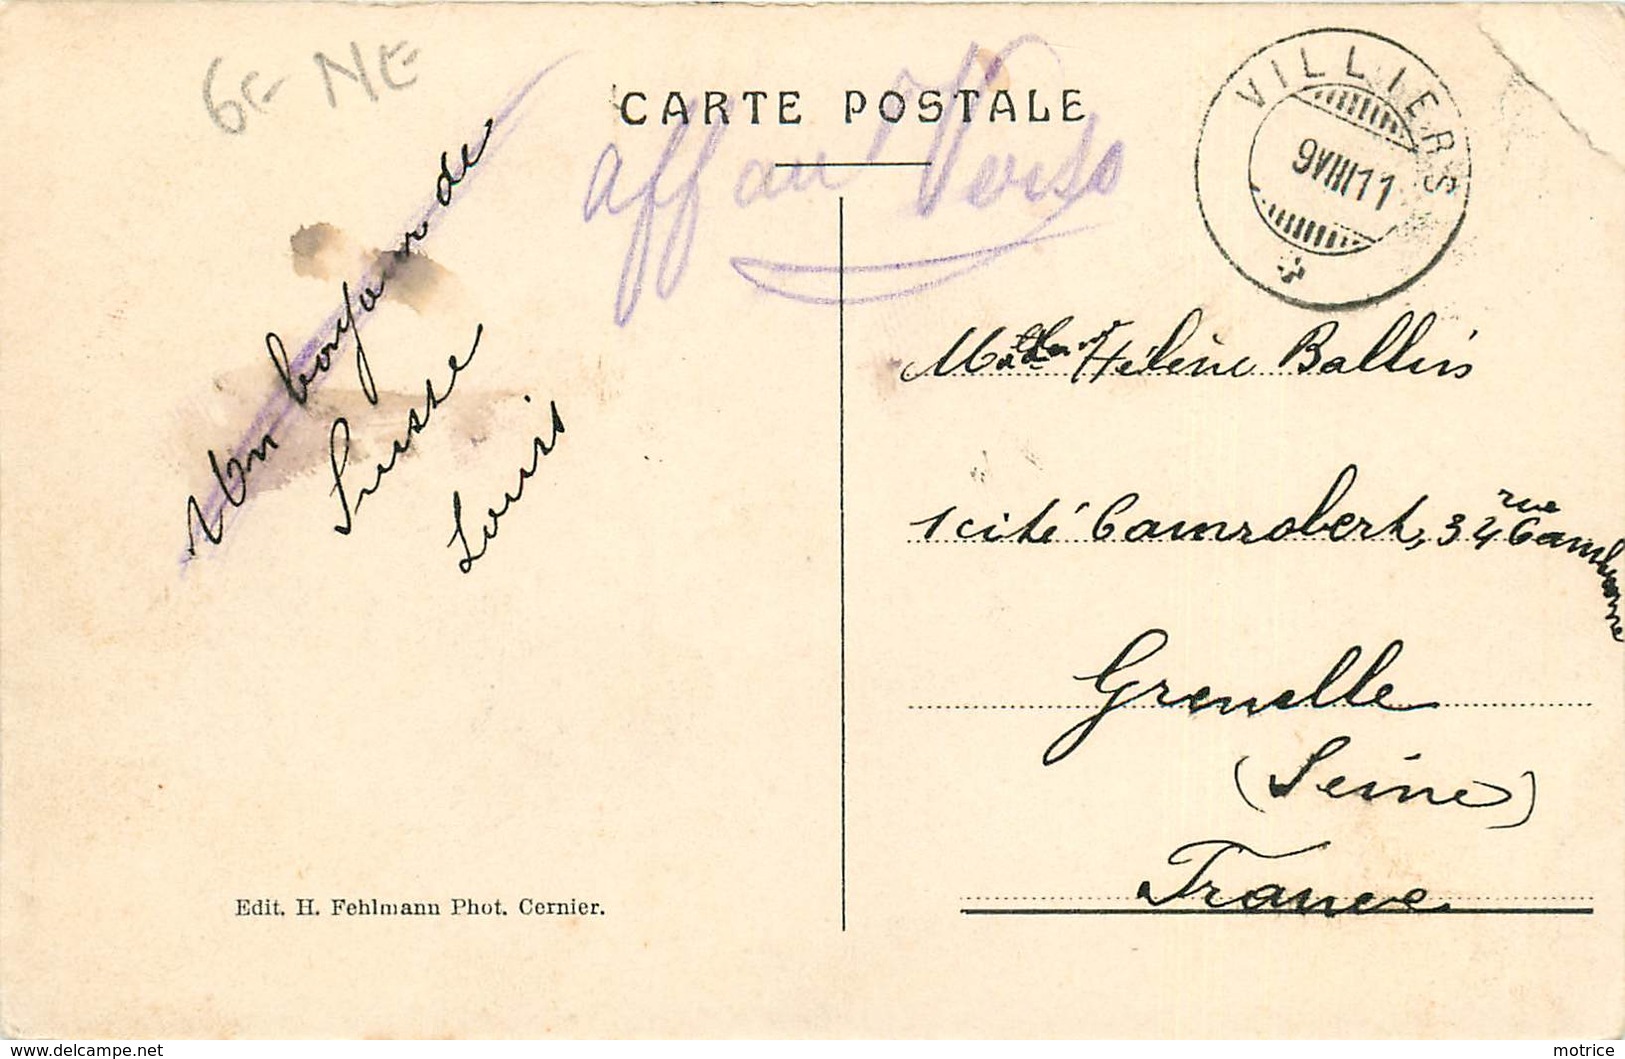 6E NE
CARTE POSTALE
aff au Verso
VILLIERS
9VIII11
Un bonjour de
Suisse
Louis
Hélène Ballins
1 cité Camrobert, 34 rue Cambronne
Grenelle
(Seine)
France
Edit. H. Fehlmann Phot. Cernier.
www.delcampe.net
motrice